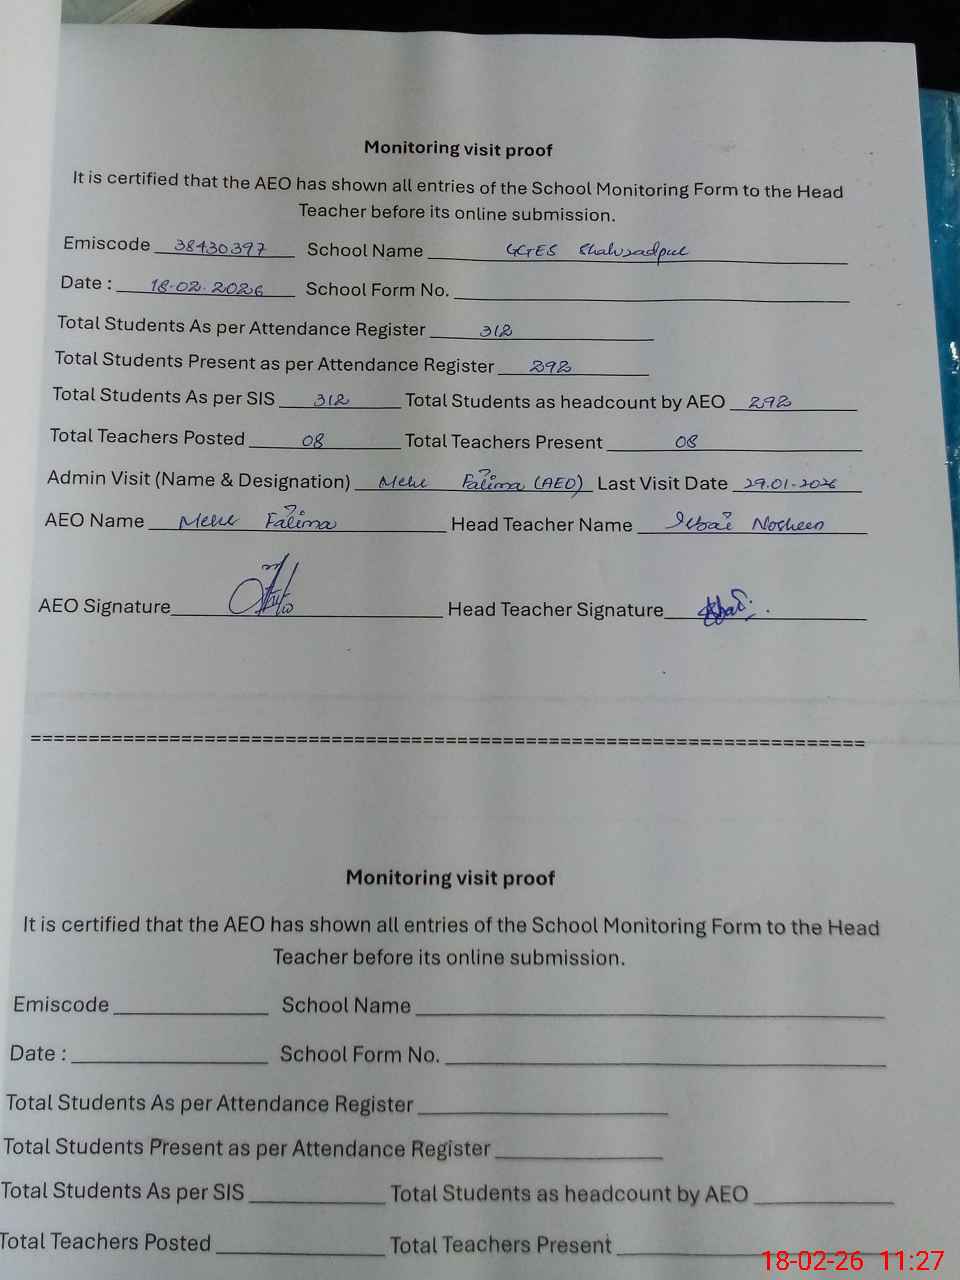 Monitoring visit proof
It is certified that the AEO has shown all entries of the School Monitoring Form to the Head
Teacher before its online submission.
Emiscode 38430397 School Name GGES Shahzadpur
Date : 18-02-2026 School Form No.
Total Students As per Attendance Register 312
Total Students Present as per Attendance Register 292
Total Students As per SIS 312 Total Students as headcount by AEO 292
Total Teachers Posted 08 Total Teachers Present 08
Admin Visit (Name & Designation) Mehr Fatima (AEO) Last Visit Date 29.01-2026
AEO Name Mehr Fatima Head Teacher Name Nosheen
AEO Signature Head Teacher Signature
=====================================================================
Monitoring visit proof
It is certified that the AEO has shown all entries of the School Monitoring Form to the Head
Teacher before its online submission.
Emiscode School Name
Date : School Form No.
Total Students As per Attendance Register
Total Students Present as per Attendance Register
Total Students As per SIS Total Students as headcount by AEO
Total Teachers Posted Total Teachers Present
18-02-26 11:27